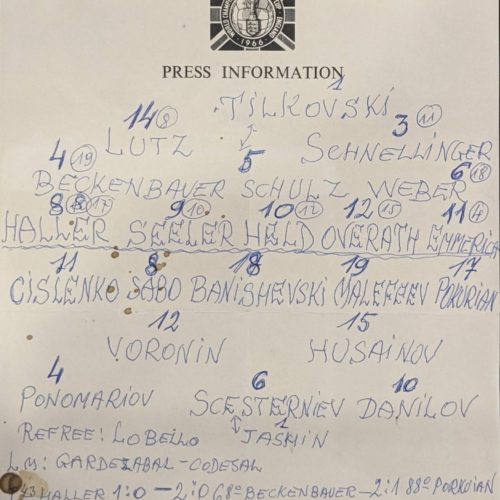 WORLD CHAMPIONSHIP
1966
PRESS INFORMATION
1
14 8 TILKOVSKI 3 11
LUTZ SCHNELLINGER
4 19 5 6 18
BECKENBAUER SCHULZ WEBER
8 8 17 9 10 10 12 12 15 11 4
HALLER SEELER HELD OVERATH EMMERICH
11 8 18 19 17
CISLENKO SABO BANISHEVSKI MALEFEEV POKURIAN
12 15
VORONIN HUSAINOV
4 6 10
PONOMARIOV SCESTERNIEV DANILOV
1
REFREE: LOBELLO JASHIN
L.M: GARDEZABAL - CODESAL
43 HALLER 1:0 - 2:0 68º BECKENBAUER - 2:1 88º PORKUIAN